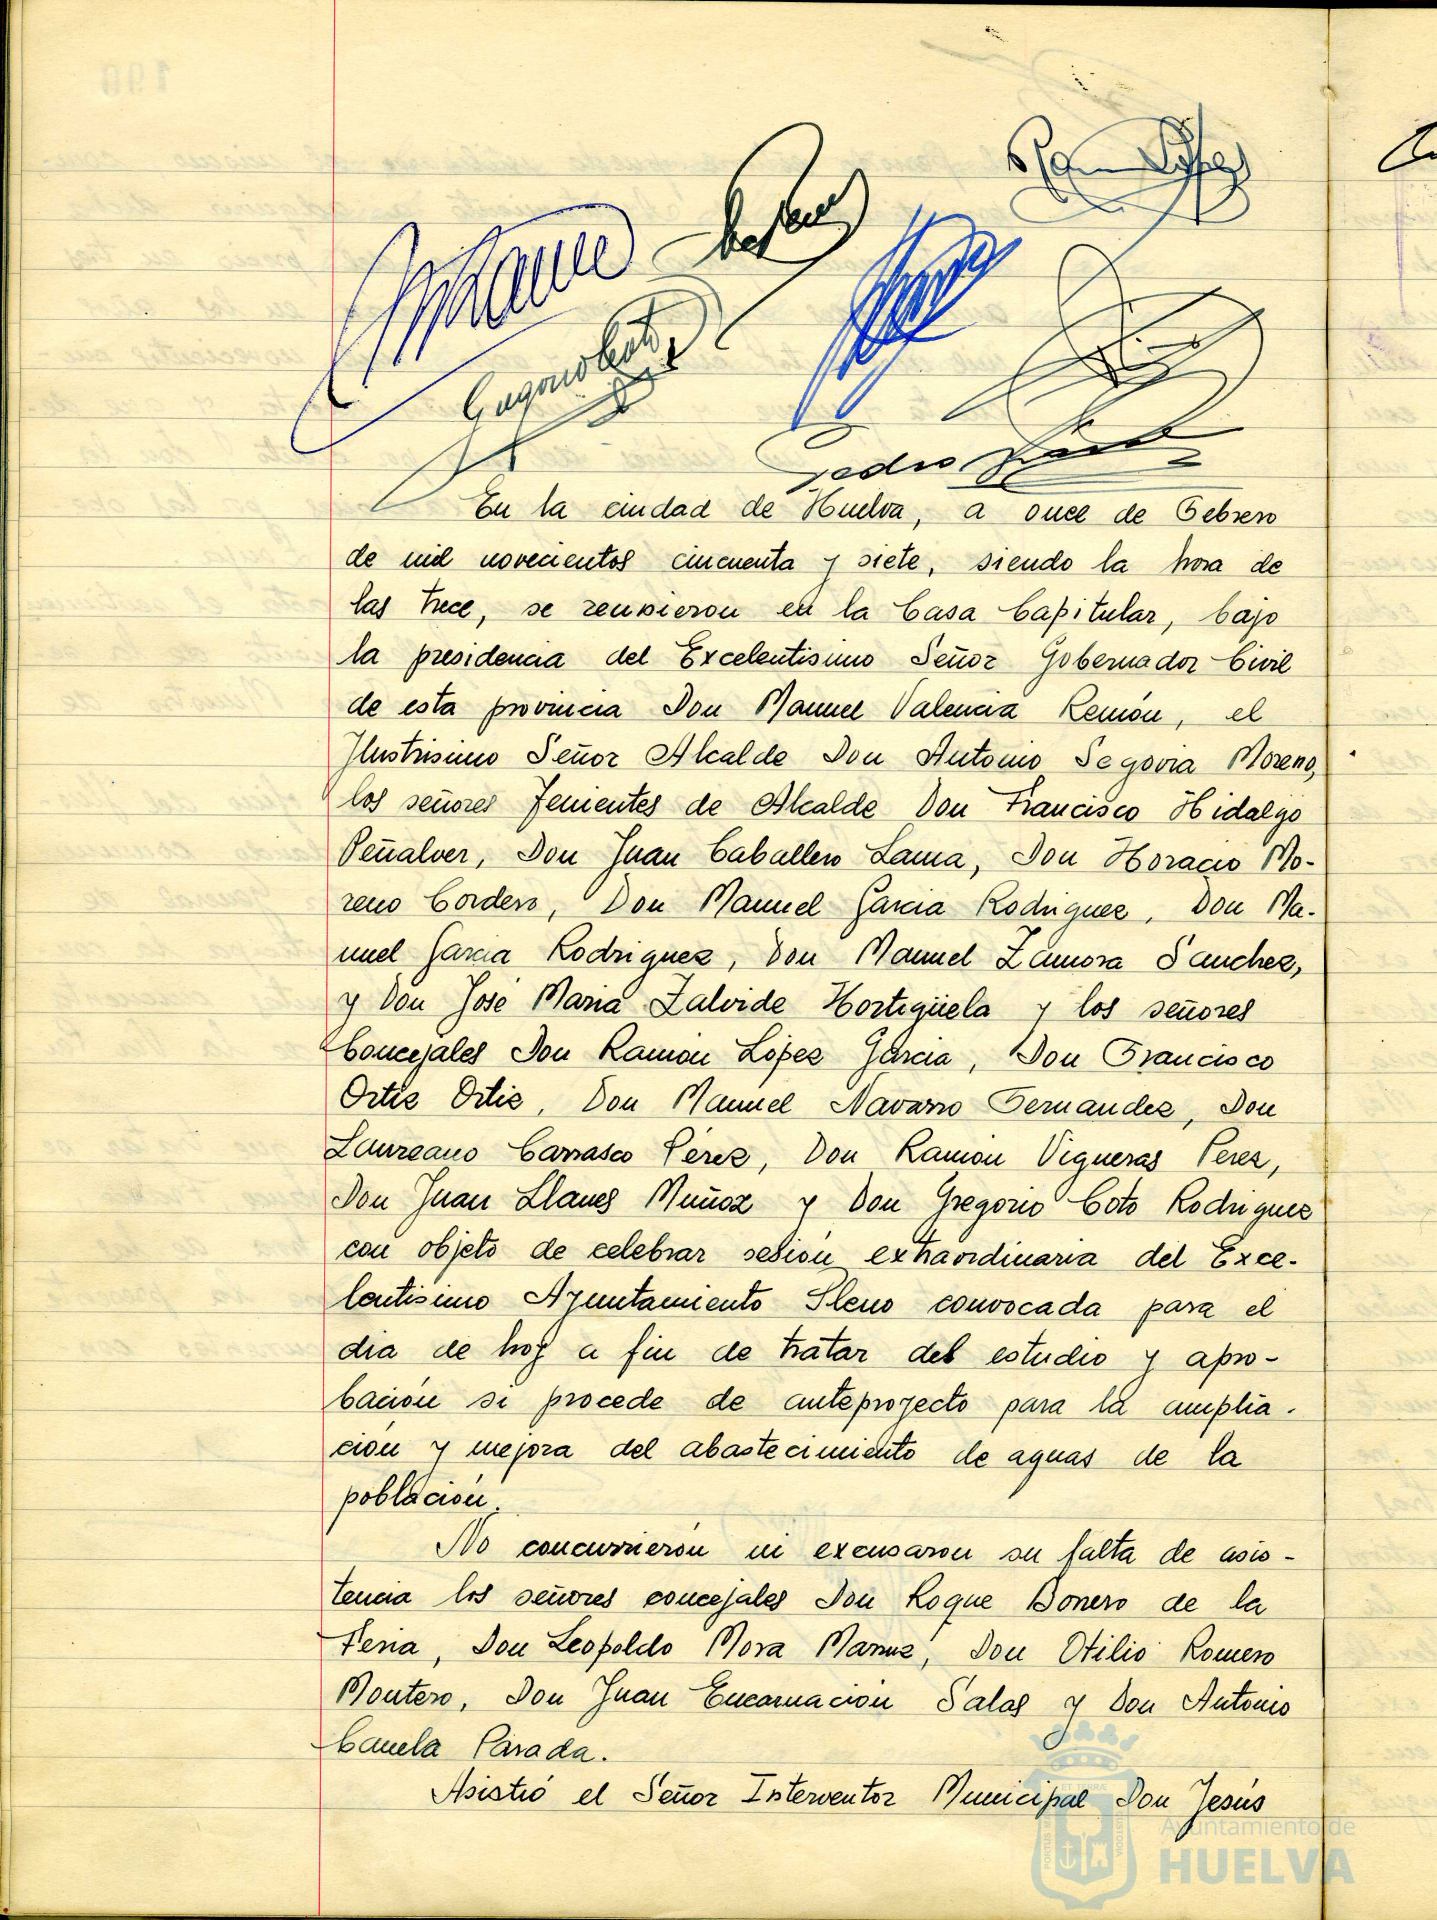 Ramon Lopez
Gregorio Coto
Pedro
En la ciudad de Huelva, a once de Febrero
de mil novecientos cincuenta y siete, siendo la hora de
las trece, se reunieron en la Casa Capitular, bajo
la presidencia del Excelentisimo Señor Gobernador Civil
de esta provincia Don Manuel Valencia Remón, el
Ilustrisimo Señor Alcalde Don Antonio Segovia Moreno,
los señores Tenientes de Alcalde Don Francisco Hidalgo
Peñalver, Don Juan Caballero Lama, Don Horacio Mo-
reno Cordero, Don Manuel Garcia Rodriguez, Don Ma-
nuel Garcia Rodriguez, Don Manuel Zamora Sanchez,
y Don José Maria Zalvide Hortigüela y los señores
Concejales Don Ramón López Garcia, Don Francisco
Ortiz Ortiz, Don Manuel Navarro Fernandez, Don
Laureano Carrasco Pérez, Don Ramón Vigueras Perez,
Don Juan Llanes Muñoz y Don Gregorio Coto Rodriguez
con objeto de celebrar sesión extraordinaria del Exce-
lentisimo Ayuntamiento Pleno convocada para el
dia de hoy a fin de tratar del estudio y apro-
bación si procede de anteproyecto para la amplia-
ción y mejora del abastecimiento de aguas de la
población.
No concurrierón ni excusaron su falta de asis-
tencia los señores concejales Don Roque Bonero de la
Feria, Don Leopoldo Mora, Don Otilio Romero
Montero, Don Juan Encarnación Salas y Don Antonio
Canela Parada.
Asistió el Señor Interventor Municipal Don Jesús
Ayuntamiento de
HUELVA